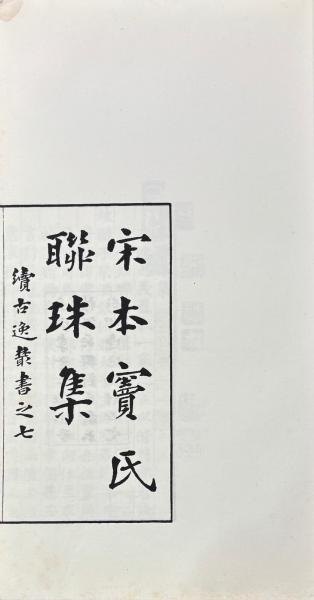 宋本竇氏
聯珠集
續古逸叢書之七